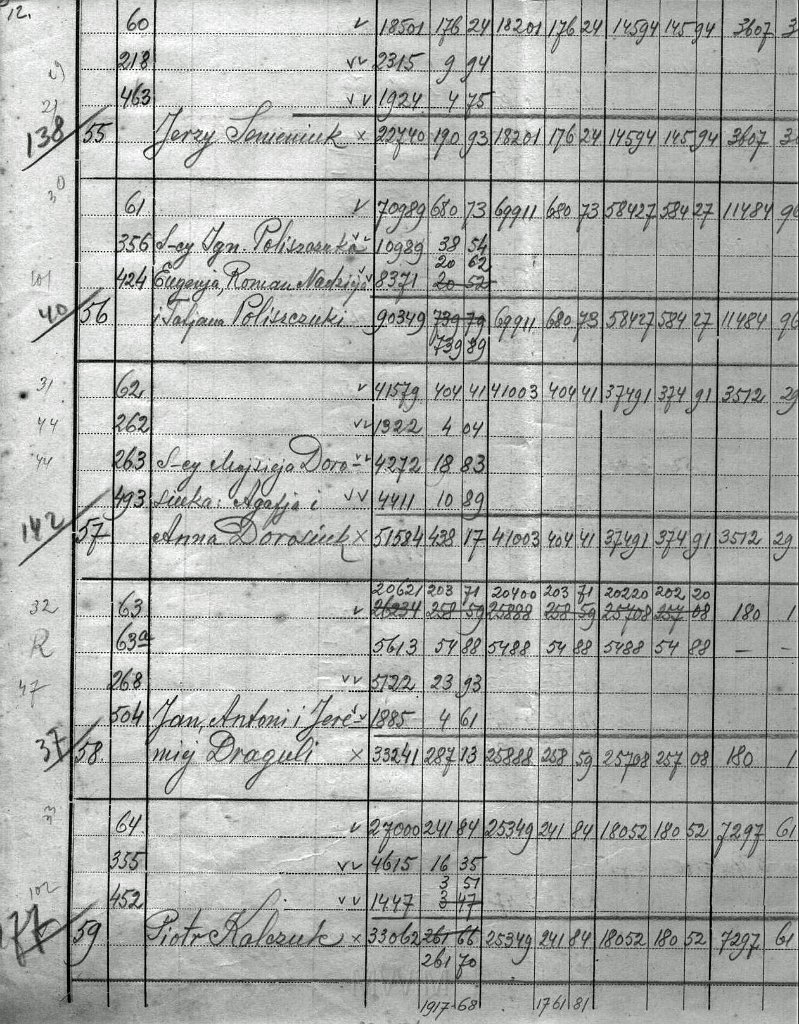 12.
60 v 18501 176 24 18201 176 24 14594 145 94 3607 3
218 vv 2315 9 94
21 463 vv 1924 4 75
138 55 Jerzy Semeniuk x 22740 190 93 18201 176 24 14594 145 94 3607 3
30 61 v 70989 680 73 69911 680 73 58427 584 27 11484 96
356 S-cy Ign. Poliszczuka vv 10989 38 54
20 62
101 424 Eugenja, Roman Nadzieja vv 8371 20 52
40 56 i Tatjana Poliszczuki 90349 739 79 69911 680 73 58427 584 27 11484 96
739 89
31 62 v 41579 404 41 41003 404 41 37491 374 91 3512 29
44 262 vv 1322 4 04
44 263 S-cy Mojsieja Doro- vv 4272 18 83
493 siuka: Agafja i vv 4411 10 89
142 57 Anna Dorosiuk x 51584 438 17 41003 404 41 37491 374 91 3512 29
20621 203 71 20400 203 71 20220 202 20
32 63 v 26234 258 59 25888 258 59 25708 257 08 180 1
R 63a 5613 54 88 5488 54 88 5488 54 88 — -
47 268 vv 5122 23 93
504 Jan, Antoni i Jere- vv 1885 4 61
37 58. mij Draguli x 33241 287 13 25888 258 59 25708 257 08 180 1
64. v 27000 241 84 25349 241 84 18052 180 52 7297 61
355 vv 4615 16 35
3 51
102 452 vv 1447 3 47
177 59 Piotr Kalczuk x 33062 261 66 25349 241 84 18052 180 52 7297 61
261 70
1917-68 1761 81